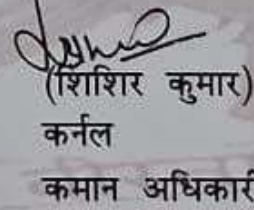 (शिशिर कुमार)
कर्नल
कमान अधिकारी